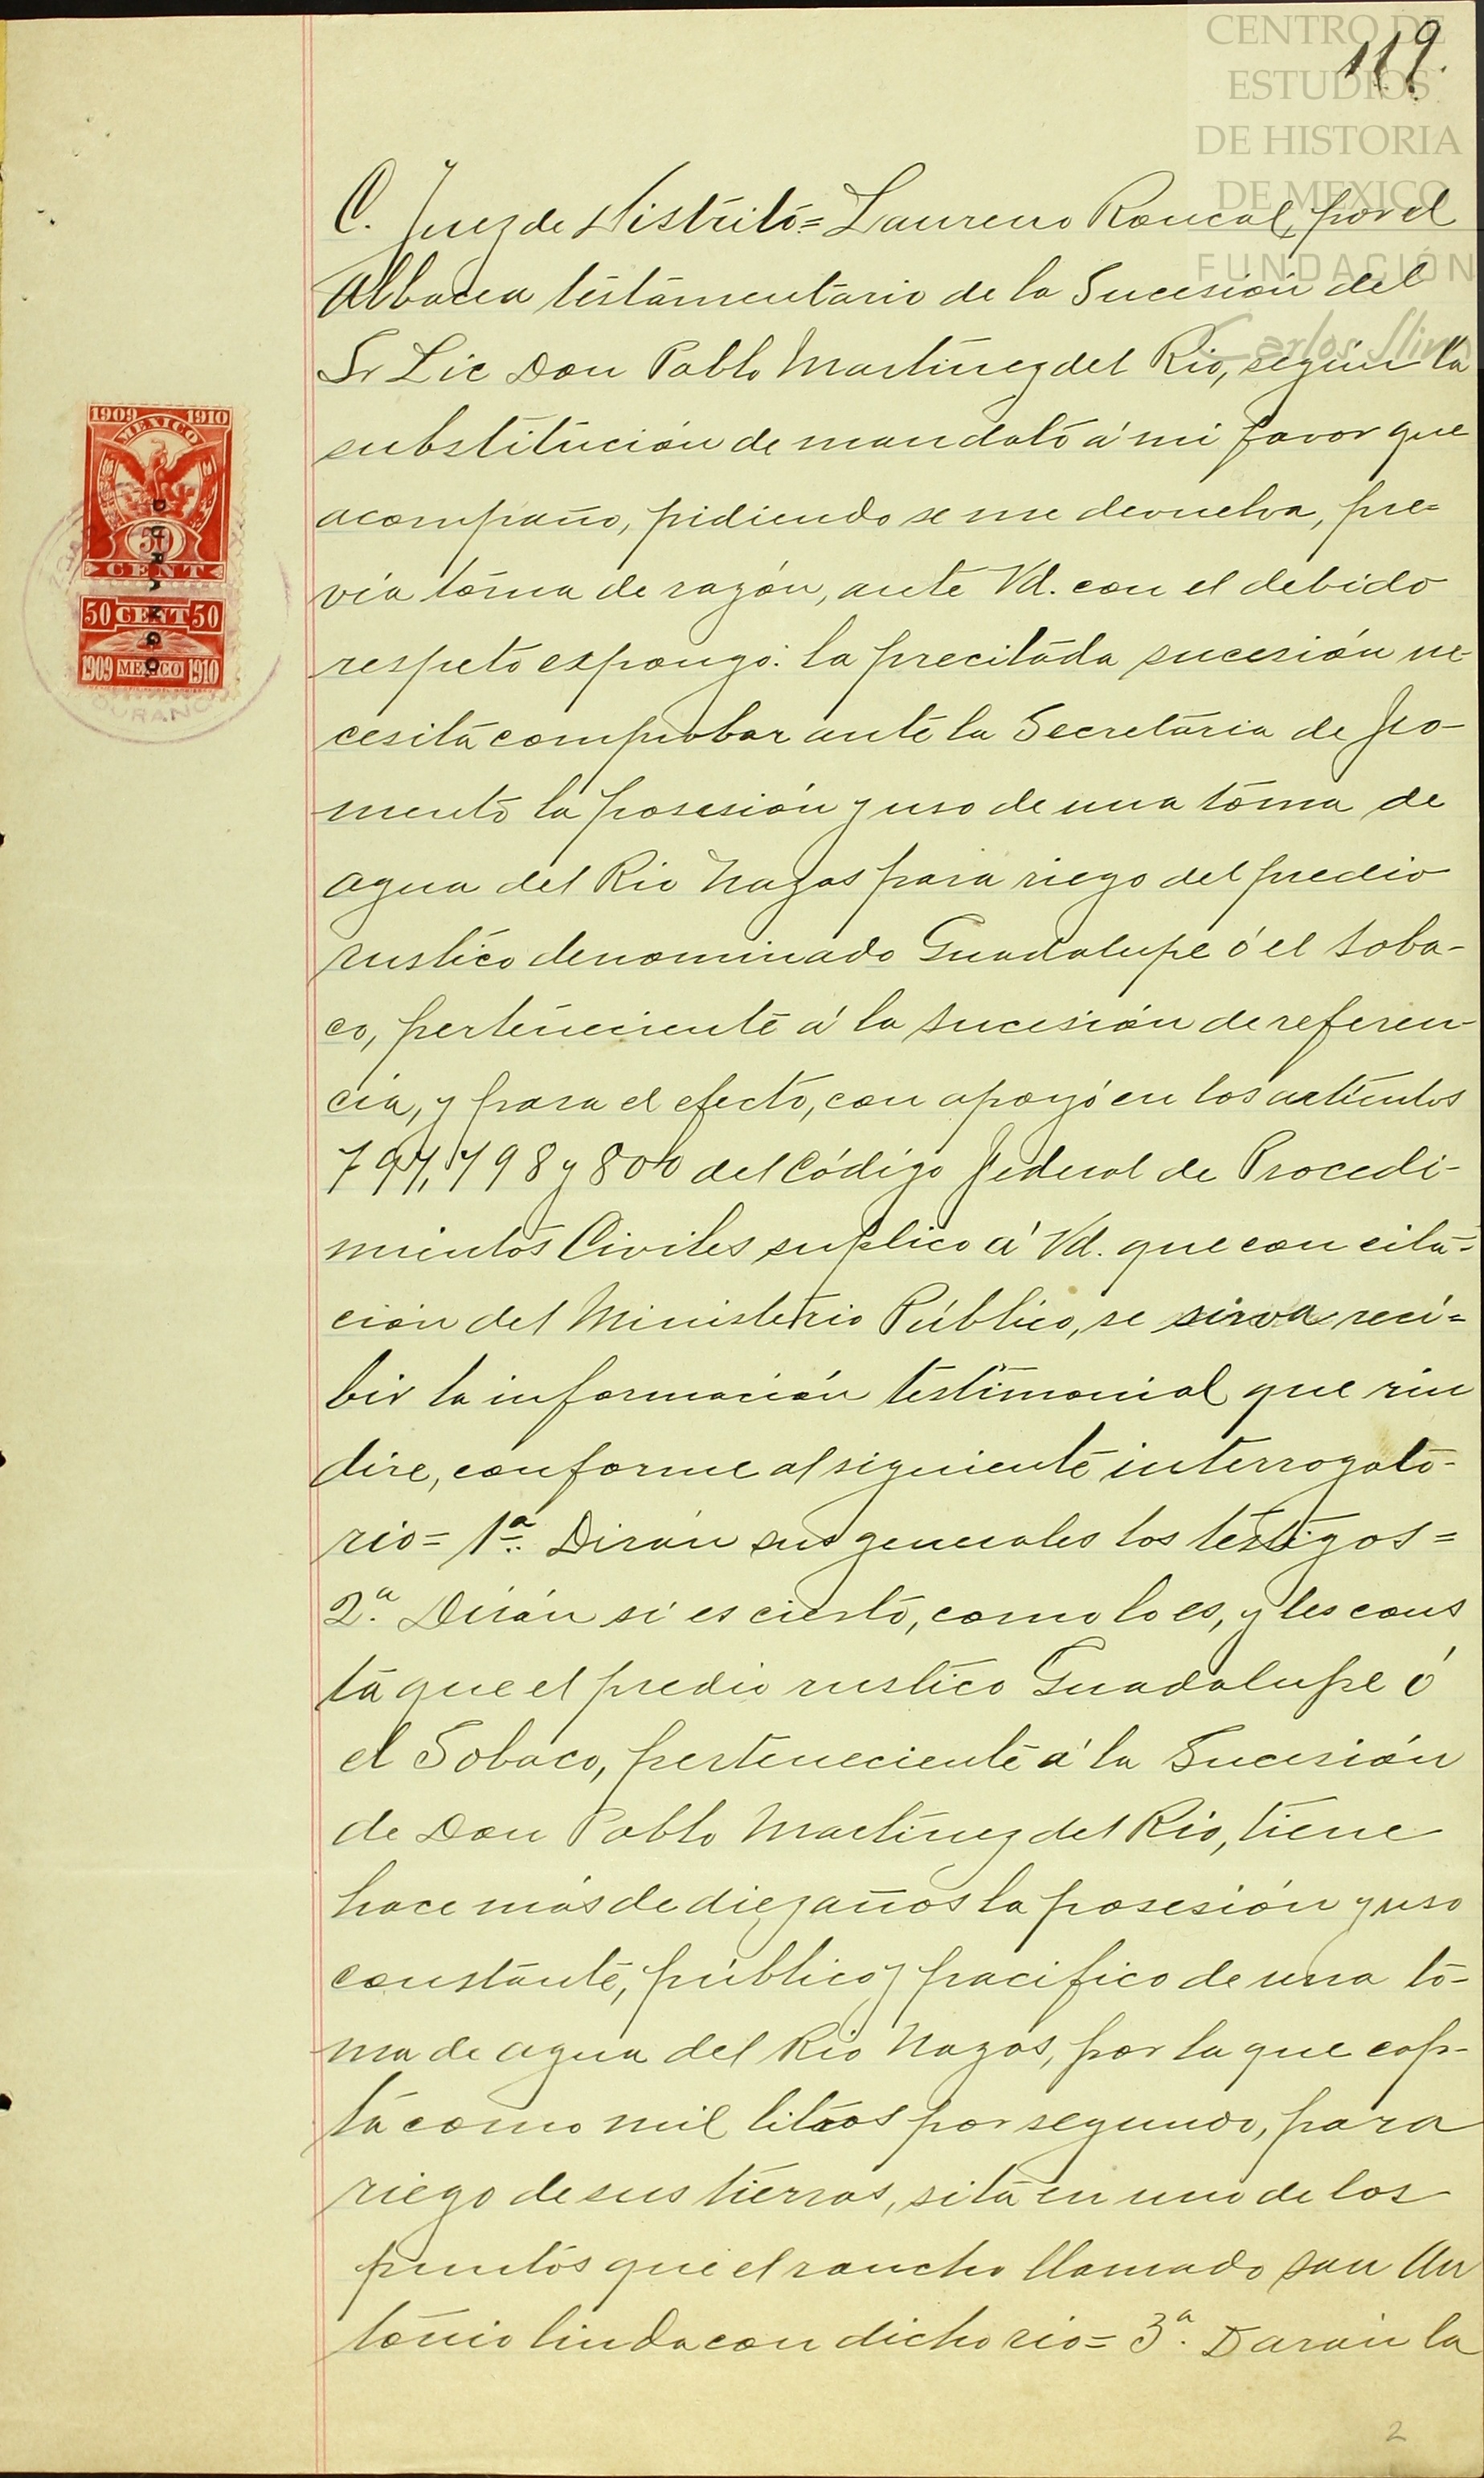 CENTRO DE
ESTUDIOS
DE HISTORIA
DE MEXICO
FUNDACIÓN
Carlos Slim
119.
C. Juez de Distrito= Laureno Roncal, por el
Albacea testamentario de la Sucesión del
Sr Lic Don Pablo Martínez del Rio, según la
substitución de mandato á mi favor que
acompaño, pidiendo se me devuelva, pre=
via toma de razón, ante Vd. con el debido
respeto expongo: la precitada sucesión ne-
cesita comprobar ante la Secretaria de Fo-
mento la posesión y uso de una toma de
agua del Rio Nazas para riego del predio
rustico denominado Guadalupe ó el Soba-
co, perteneciente á la sucesión de referen-
cia, y para el efecto, con apoyo en los artículos
797, 798 y 800 del Código Federal de Procedi-
mientos Civiles suplico á Vd. que con cita-
ción del Ministerio Público, se sirva reci=
bir la información testimonial que rin
dire, conforme al siguiente interrogato-
rio= 1ª. Dirán sus generales los testigos=
2.ª Dirán si es cierto, como lo es, y les cons
ta que el predio rustico Guadalupe ó
el Sobaco, perteneciente á la Sucesión
de Don Pablo Martínez del Rio, tiene
hace más de diez años la posesión y uso
constante, público y pacifico de una to-
ma de agua del Rio Nazas, por la que cap-
ta como mil litros por segundo, para
riego de sus tierras, sita en uno de los
puntos que el rancho llamado San An
tonio linda con dicho rio= 3ª. Darán la
1909 1910
MEXICO
50
CENT
50 CENT 50
1909 MEXICO 1910
DURANGO
DURANGO
2